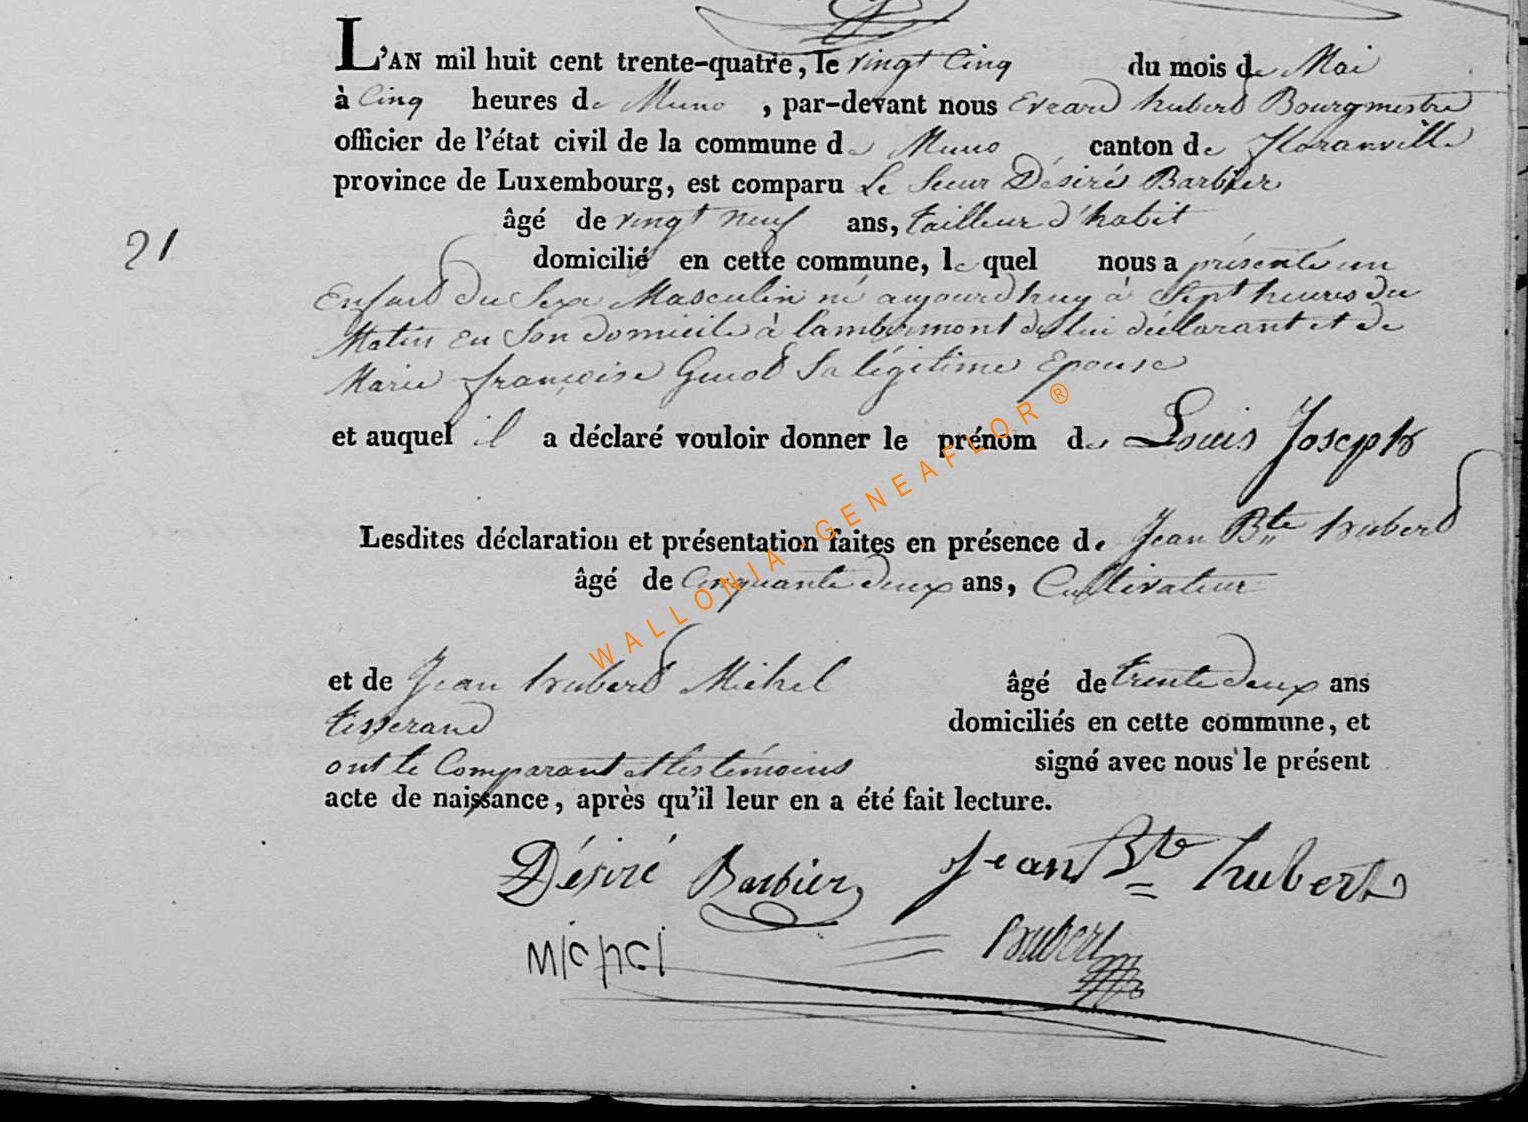 L'AN mil huit cent trente-quatre, le vingt Cinq du mois de Mai
à Cinq heures de Muno, par-devant nous Evrard hubert Bourgmestre
officier de l'état civil de la commune de Muno canton de Floranville
province de Luxembourg, est comparu Le Sieur Désiré Barbier
âgé de vingt neuf ans, tailleur d'habit
21
domicilié en cette commune, lequel nous a présenté un
Enfant du Sexe Masculin né aujourdhuy à Sept heures du
Matin en Son domicile à lambermont de lui déclarant et de
Marie françoise Guiot Sa légitime Epouse
et auquel il a déclaré vouloir donner le prénom de Louis Joseph
Lesdites déclaration et présentation faites en présence de Jean Bte hubert
âgé de Cinquante deux ans, Cultivateur
et de Jean hubert Michel âgé de trente deux ans
tisserand domiciliés en cette commune, et
ont le Comparant et les témoins signé avec nous le présent
acte de naissance, après qu'il leur en a été fait lecture.
Désiré Barbier Jean Bte hubert
Michel hubert
WALLONIA-GENEAFLOR ®